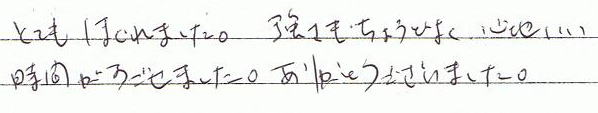 とてもほぐれました。 強さもちょうどよく 心地いい
時間がすごせました。ありがとうございました。